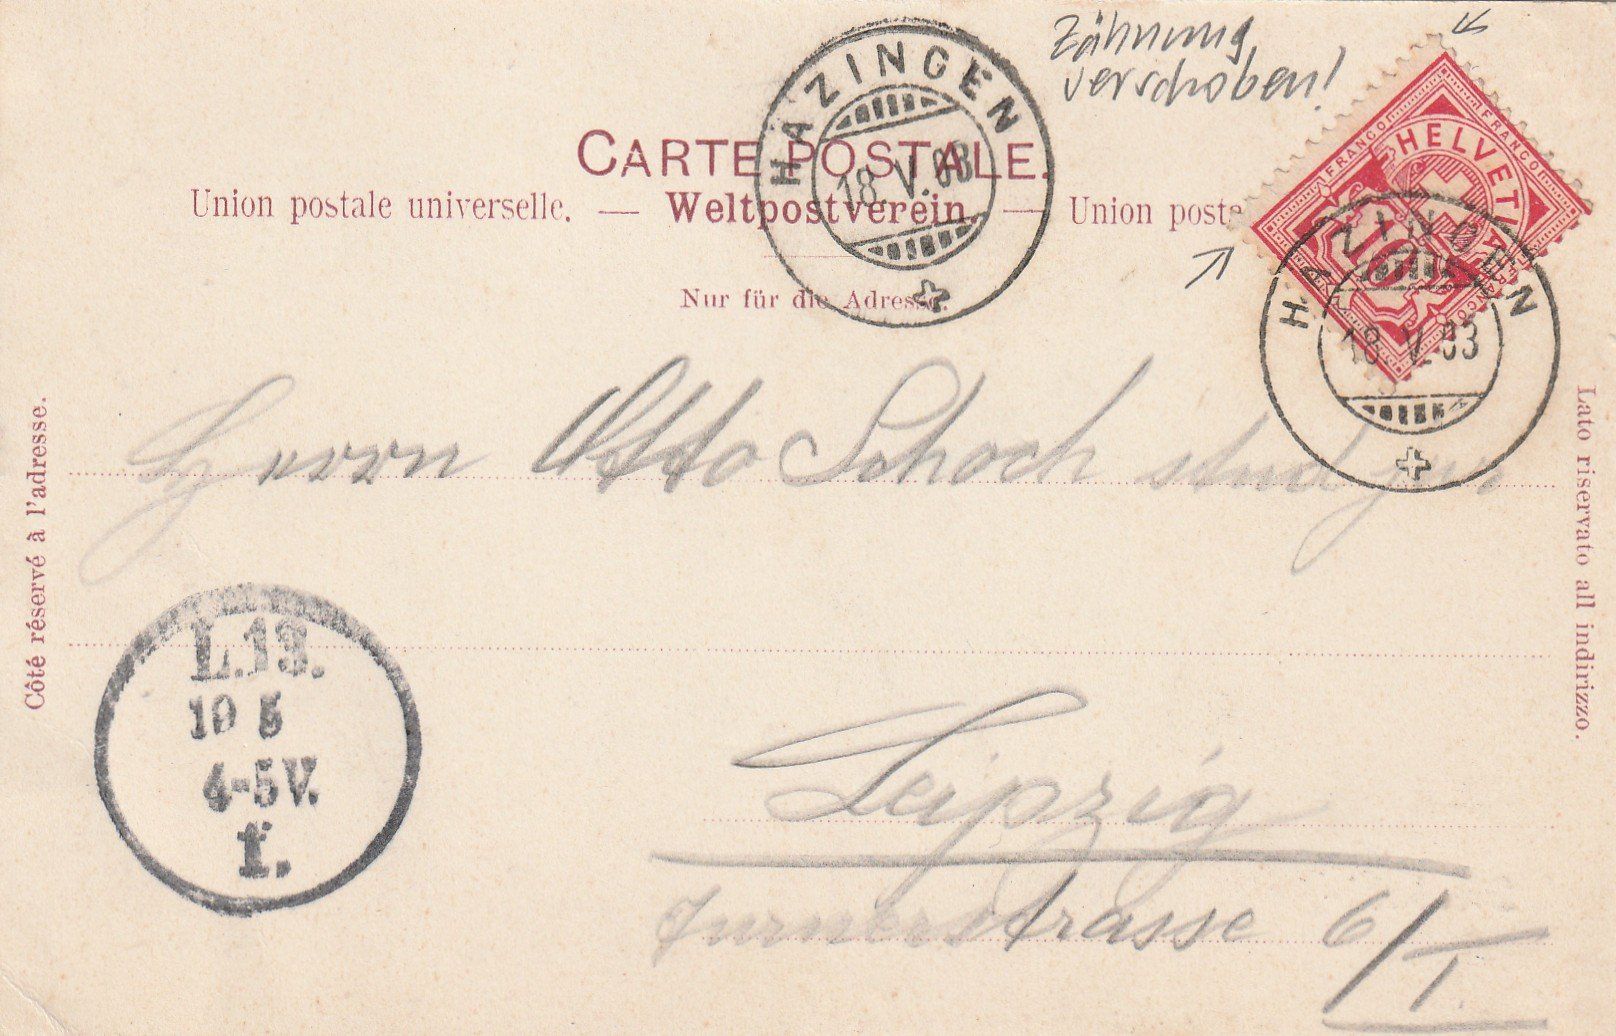 Zähnung
verschoben!
HÄZINGEN
18.V.03
CARTE POSTALE.
Union postale universelle. — Weltpostverein — Union posta
Nur für die Adresse.
FRANCO HELVETIA FRANCO
10
FRANCO
HÄZINGEN
18.V.03
Côté réservé à l'adresse.
Lato riservato all indirizzo.
Herrn Otto Schoch stud jur
L.13.
19 5
4-5V.
f.
Leipzig
Turnerstrasse 6/I.